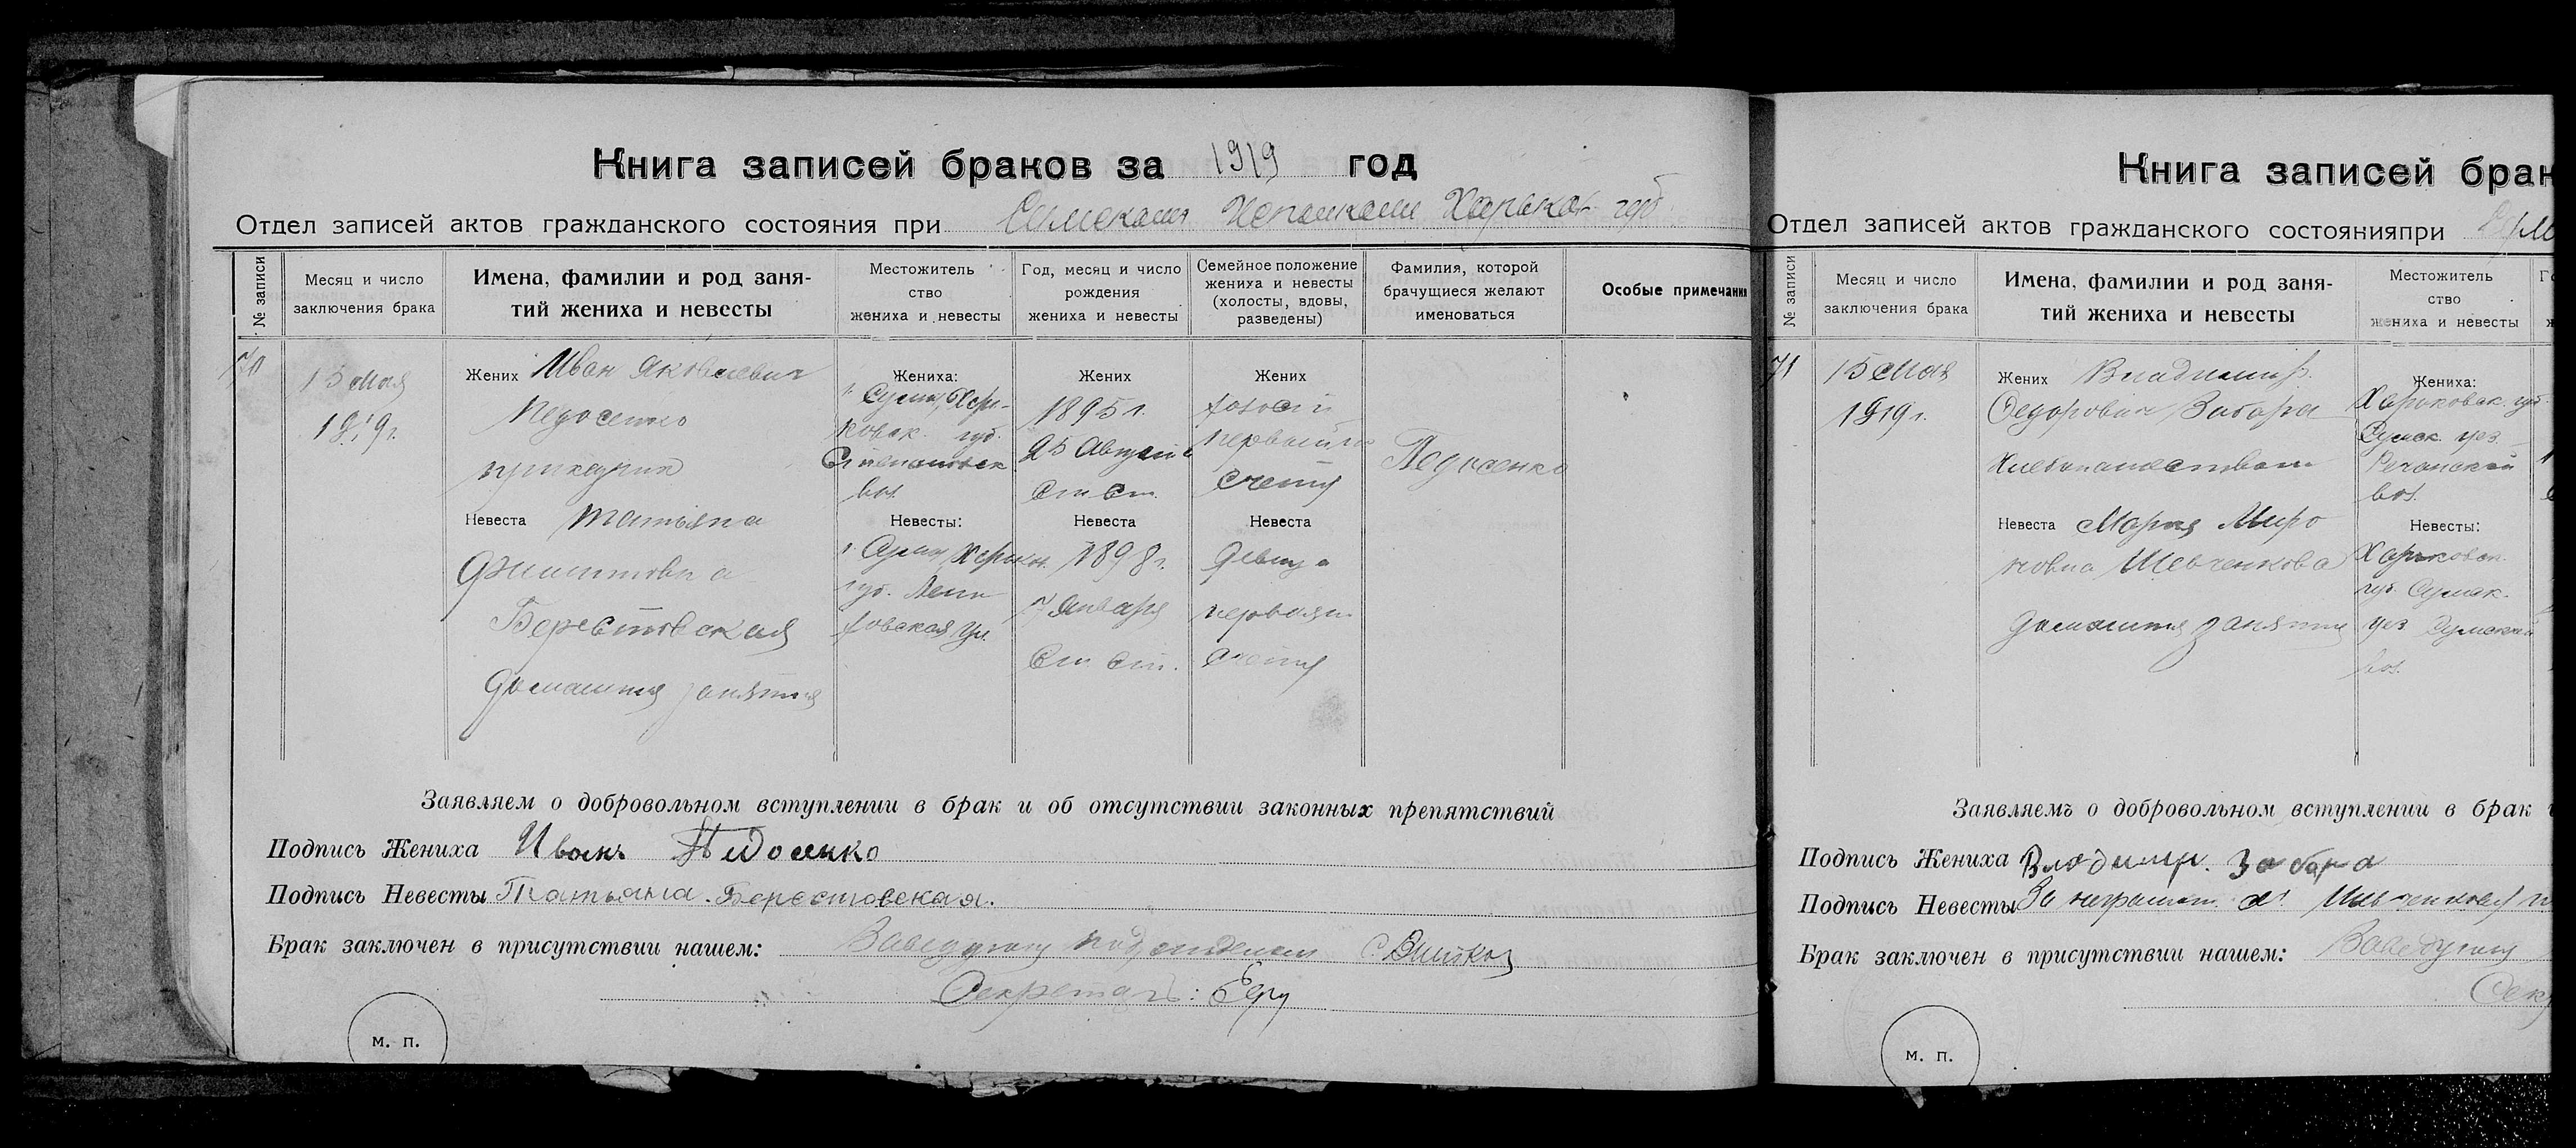 Книга записей браков за 1919 год
Отдел записей актов гражданского состояния при Харьков губ.
№ записи
Месяц и число заключения брака
Имена, фамилии и род заня-
тий жениха и невесты
Местожитель
ство
жениха и невесты
Год, месяц и число
рождения
жениха и невесты
Семейное положение
жениха и невесты
(холосты, вдовы,
разведены)
Фамилия, которой
брачущиеся желают
именоваться
Особые примечания
70
15 Мая
1919г.
Жених Иван Яковлевич
Педосенко
Невеста Татьяна
Филипповна
Берестовская
домашния занятия
Жениха:
г. Сумы, Харь-
ковск. губ.
вол.
Невесты:
г. Сумы Харьков.
губ.
ул.
Жених
1895 г.
25 Августа
Ст. Ст.
Невеста
1898 г.
7 Января
Ст. Ст.
Жених
холост
первый по
счету
Невеста
девица
первая по
счету
Педосенко
Заявляем о добровольном вступлении в брак и об отсутствии законных препятствий
Подпись Жениха Иванъ Педосенко
Подпись Невесты Татьяна Берестовская.
Брак заключен в присутствии нашем: Заведующий подотделом
Секретарь:
м. п.
Книга записей брак
Отдел записей актов гражданского состоянияпри
№ записи
Месяц и число
заключения брака
Имена, фамилии и род заня-
тий жениха и невесты
Местожитель
ство
жениха и невесты
71
15 Мая
1919г.
Жених Владимир
Федорович Забара
Хлебопашество
Невеста Мария Миро
новна Шевченкова
домашния занятия
Жениха:
Харьковск. губ.
Сумск. уез.
Речанской
вол.
Невесты:
Харьковск.
губ. Сумск.
уез. Сумской
вол.
Заявляемъ о добровольном вступлении в брак
Подпись Жениха Владимир. Забара
Подпись Невесты За неграмот.
Брак заключен в присутствии нашем: Заведующий
Сек
м. п.